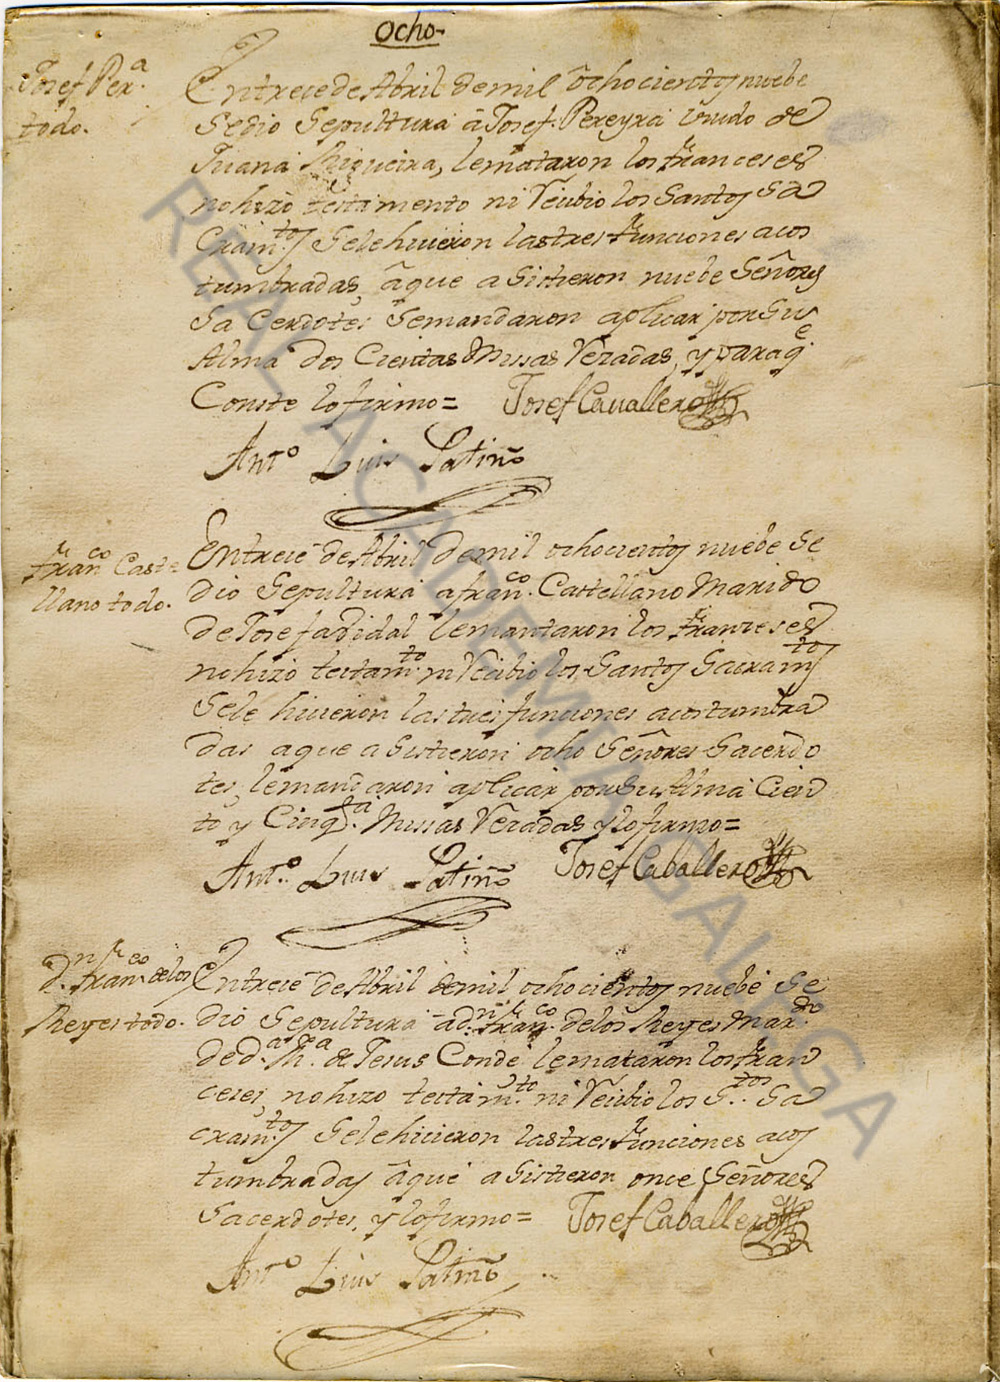 Ocho-
Josef Per.ª
todo.
En trece de Abril de mil ôchocientos nuebe
Se dio Sepultura â Josef Pereyra viudo de
Juana Migueira, le mataron los franceses
no hizo testamento ni Recibio los Santos Sa
cram.tos Se le hicieron las tres funciones acos
tumbradas, âque asistieron nuebe Señores
Sacerdotes Se mandaron aplicar por Su
Alma dos Cientas Missas Rezadas, y para q.e
Conste lo firmo= Josef Cavallero
Ant.o Luis Patiño
fran.co Caste
llano todo.
En trece de Abril de mil ochocientos nuebe Se
dio Sepultura a fran.co Castellano Marido
de Josefa Vidal le mantaron los franceses
no hizo testam.to ni Recibio los Santos Sacram.tos
Se le hicieron las tres funciones acostumbra
das aque asistieron ocho Señores Sacerdo
tes, le mandaron aplicar por Su Alma Cien
to y Cinq.ta Missas Rezadas y lo firmo=
Ant.o Luis Patiño Josef Caballero
d.n fran.co de los
Reyes todo.
En trece de Abril de mil ochocientos nuebe Se
dio Sepultura a d.n fran.co de los Reyes Mar.do
de d.a M.a de Jesus Conde le mataron los fran
ceses, no hizo testam.to ni Recibio los S.tos Sa
cram.tos Se le hicieron las tres funciones acos
tumbradas âque asistieron once Señores
Sacerdotes, y lo firmo= Josef Caballero
Ant.o Luis Patiño
REAL ACADEMIA GALEGA